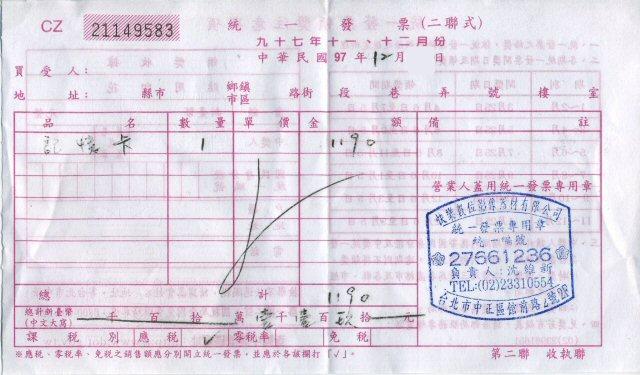 CZ 21149583
統一發票(二聯式)
九十七年十一、十二月份
中華民國97年12月 日
買受人:
地址: 縣市 鄉鎮市區 路街 段 巷 弄 號 樓 室
品名 數量 單價 金額 備註
記憶卡 1 1190
營業人蓋用統一發票專用章
位影像器材有限公司
統一發票專用章
統一編號
27661236
負責人:沈維新
TEL:(02)23310554
台北市中正區館前路 號2F
總計 1190
總計新臺幣(中文大寫) 千 百 拾 萬 壹 千 壹 百 玖 拾 元
課稅別 應稅 √ 零稅率 免稅
※應稅、零稅率、免稅之銷售額應分別開立統一發票,並應於各該欄打「√」。
第二聯 收執聯